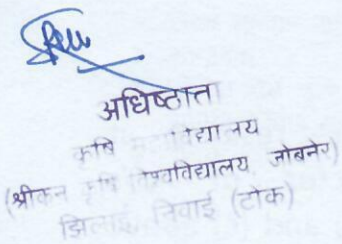 अधिष्ठाता
कृषि महाविद्यालय
(श्रीकर्ण कृषि विश्वविद्यालय, जोबनेर)
झिलाई, निवाई (टोंक)